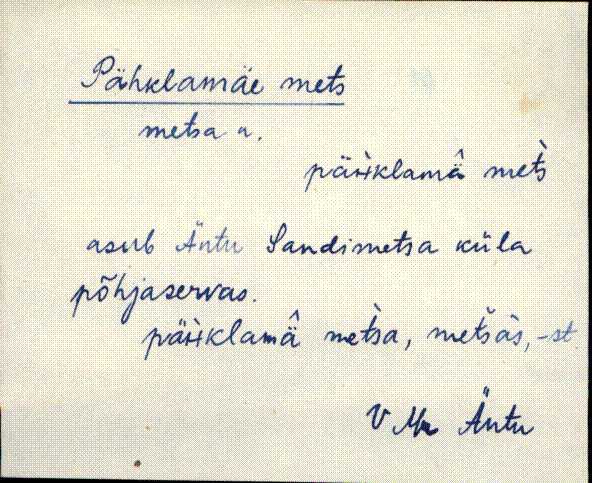 Pähklamäe mets
metsa n.
pä̀hklamâ mèts
asub Äntu Sandimetsa küla
põhjaservas.
pä̀hklamâ mètsa, metsàs, -st
V Mr Äntu